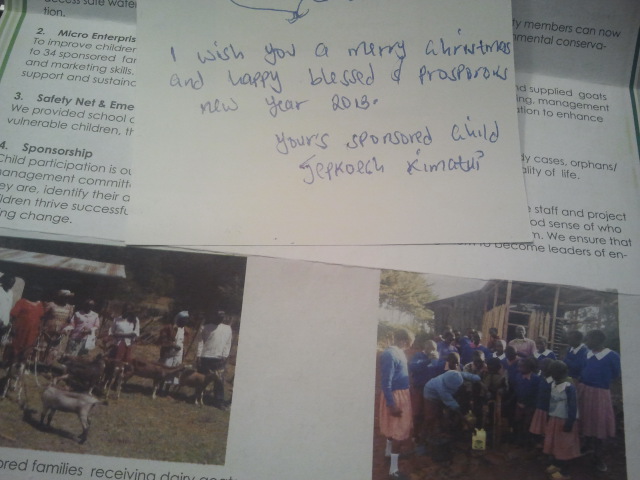 access safe water
tion.
2. Micro Enterpris
To improve children
to 34 sponsored far
and marketing skills.
support and sustainc
3. Safety Net & Eme
We provided school c
vulnerable children, th
4. Sponsorship
Child participation is ou
management committ
ey are, identify their a
ldren thrive successfu
ing change.
I wish you a merry christmas
and happy blessed & prosporous
new year 2013.
yours sponsored child
Jepkoech Kimatui
ty members can now
nmental conserva-
nd supplied goats
ing, management
ation to enhance
dy cases, orphans/
ality of life.
staff and project
od sense of who
n. We ensure that
to become leaders of en-
ored families receiving dairy goat